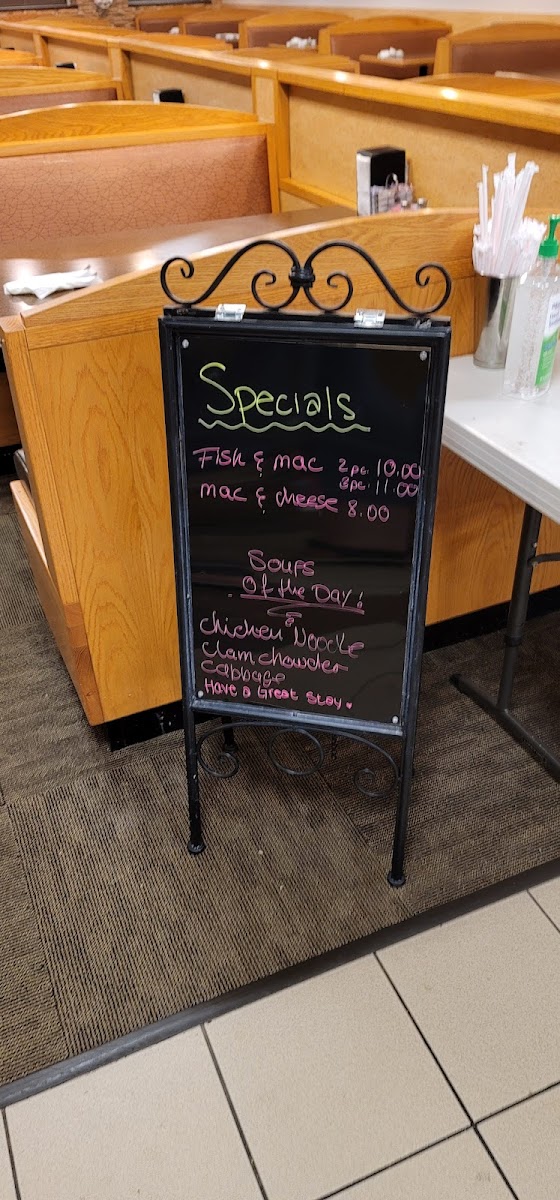 Specials
Fish & mac 2pc. 10.00
3pc. 11.00
mac & cheese 8.00
Soups
Of the Day!
Chicken Noodle
Clam chowder
Cabbage
Have a Great Stay